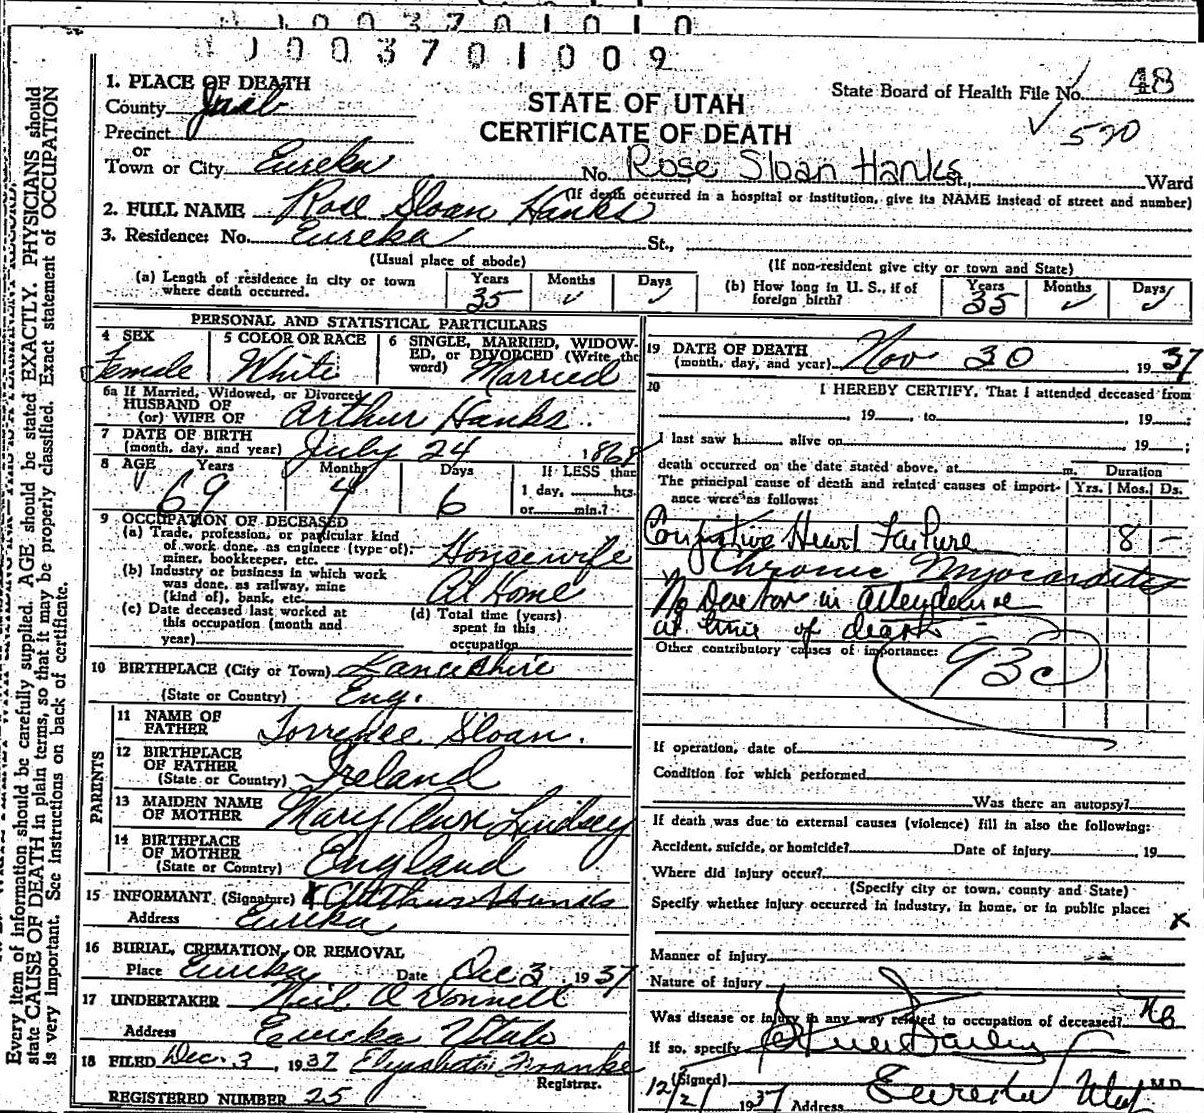 1003701010
1003701009
48
1. PLACE OF DEATH
County Juab
STATE OF UTAH
State Board of Health File No.
Precinct
CERTIFICATE OF DEATH
570
or
Town or City Eureka No. Rose Sloan Hanks St., Ward
(If death occurred in a hospital or institution, give its NAME instead of street and number)
2. FULL NAME Rose Sloan Hanks
3. Residence: No. Eureka St.,
(Usual place of abode) (If non-resident give city or town and State)
(a) Length of residence in city or town where death occurred. Years 35 Months ✓ Days ✓
(b) How long in U. S., if of foreign birth? Years 35 Months ✓ Days ✓
PERSONAL AND STATISTICAL PARTICULARS
4 SEX Female
5 COLOR OR RACE White
6 SINGLE, MARRIED, WIDOWED, or DIVORCED (Write the word) Married
6a If Married, Widowed, or Divorced
HUSBAND OF
(or) WIFE OF Arthur Hanks.
7 DATE OF BIRTH
(month, day, and year) July 24 1868
8 AGE Years 69 Months 4 Days 6 If LESS than
1 day, hrs.
or min.?
9 OCCUPATION OF DECEASED
(a) Trade, profession, or particular kind
of work done, as engineer (type of),
miner, bookkeeper, etc. Housewife
(b) Industry or business in which work
was done, as railway, mine
(kind of), bank, etc. At Home
(c) Date deceased last worked at
this occupation (month and
year)
(d) Total time (years)
spent in this
occupation
10 BIRTHPLACE (City or Town) Lancashire
(State or Country) Eng.
PARENTS
11 NAME OF
FATHER Sloan.
12 BIRTHPLACE
OF FATHER
(State or Country) Ireland
13 MAIDEN NAME
OF MOTHER Mary Ann Lindsey
14 BIRTHPLACE
OF MOTHER
(State or Country) England
15 INFORMANT (Signature) x Arthur Hanks
Address Eureka
16 BURIAL, CREMATION, OR REMOVAL
Place Eureka Date Dec 3 1937
17 UNDERTAKER Neil O Donnell
Address Eureka Utah
18 FILED Dec. 3, 1937 Elizabeth Franke
Registrar.
REGISTERED NUMBER 25
19 DATE OF DEATH
(month, day, and year) Nov 30 1937
20 I HEREBY CERTIFY, That I attended deceased from
, 19 , to , 19 ;
I last saw h alive on , 19 ;
death occurred on the date stated above, at m. Duration
The principal cause of death and related causes of import-
ance were as follows: Yrs. Mos. Ds.
Congestive Heart Failure 8 –
Chronic Myocarditis
No Doctor in attendence
at time of death
Other contributory causes of importance:
93c
If operation, date of
Condition for which performed
Was there an autopsy?
If death was due to external causes (violence) fill in also the following:
Accident, suicide, or homicide? Date of injury , 19
Where did injury occur?
(Specify city or town, county and State)
Specify whether injury occurred in industry, in home, or in public place:
x
Manner of injury
Nature of injury
Was disease or injury in any way related to occupation of deceased? No
If so, specify
(Signed) M.D.
12/2/ 1937 Address Eureka Utah
Every item of information should be carefully supplied. AGE should be stated EXACTLY. PHYSICIANS should
state CAUSE OF DEATH in plain terms, so that it may be properly classified. Exact statement of OCCUPATION
is very important. See instructions on back of certificate.